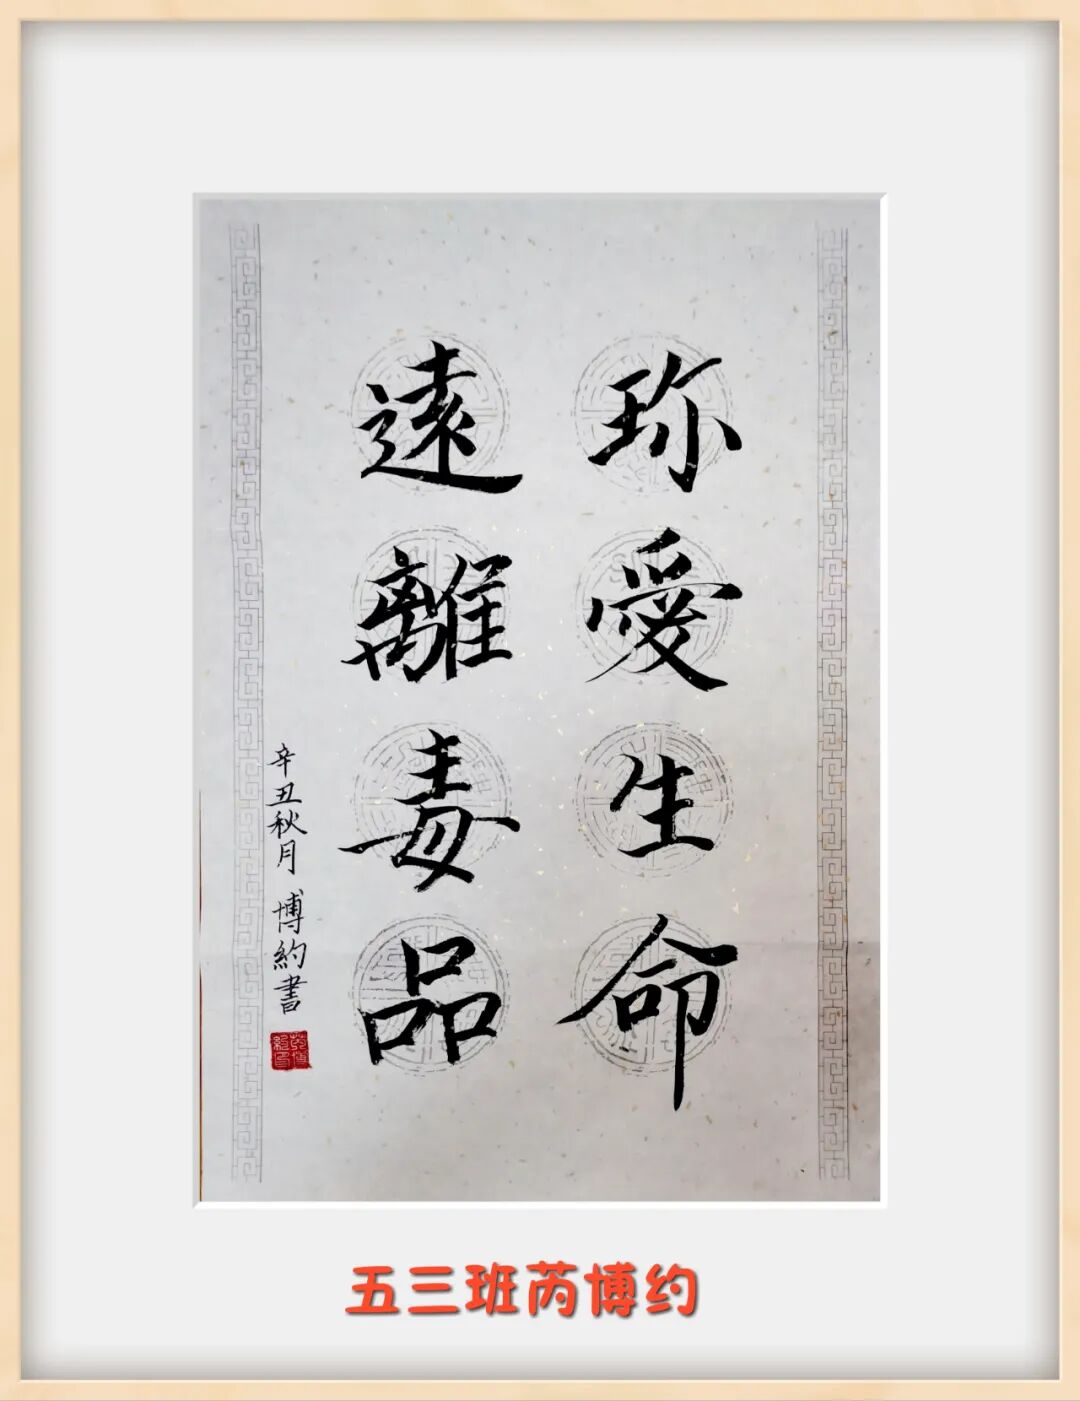 珎愛生命
遠離毒品
辛丑秋月 博約書
五三班芮博约